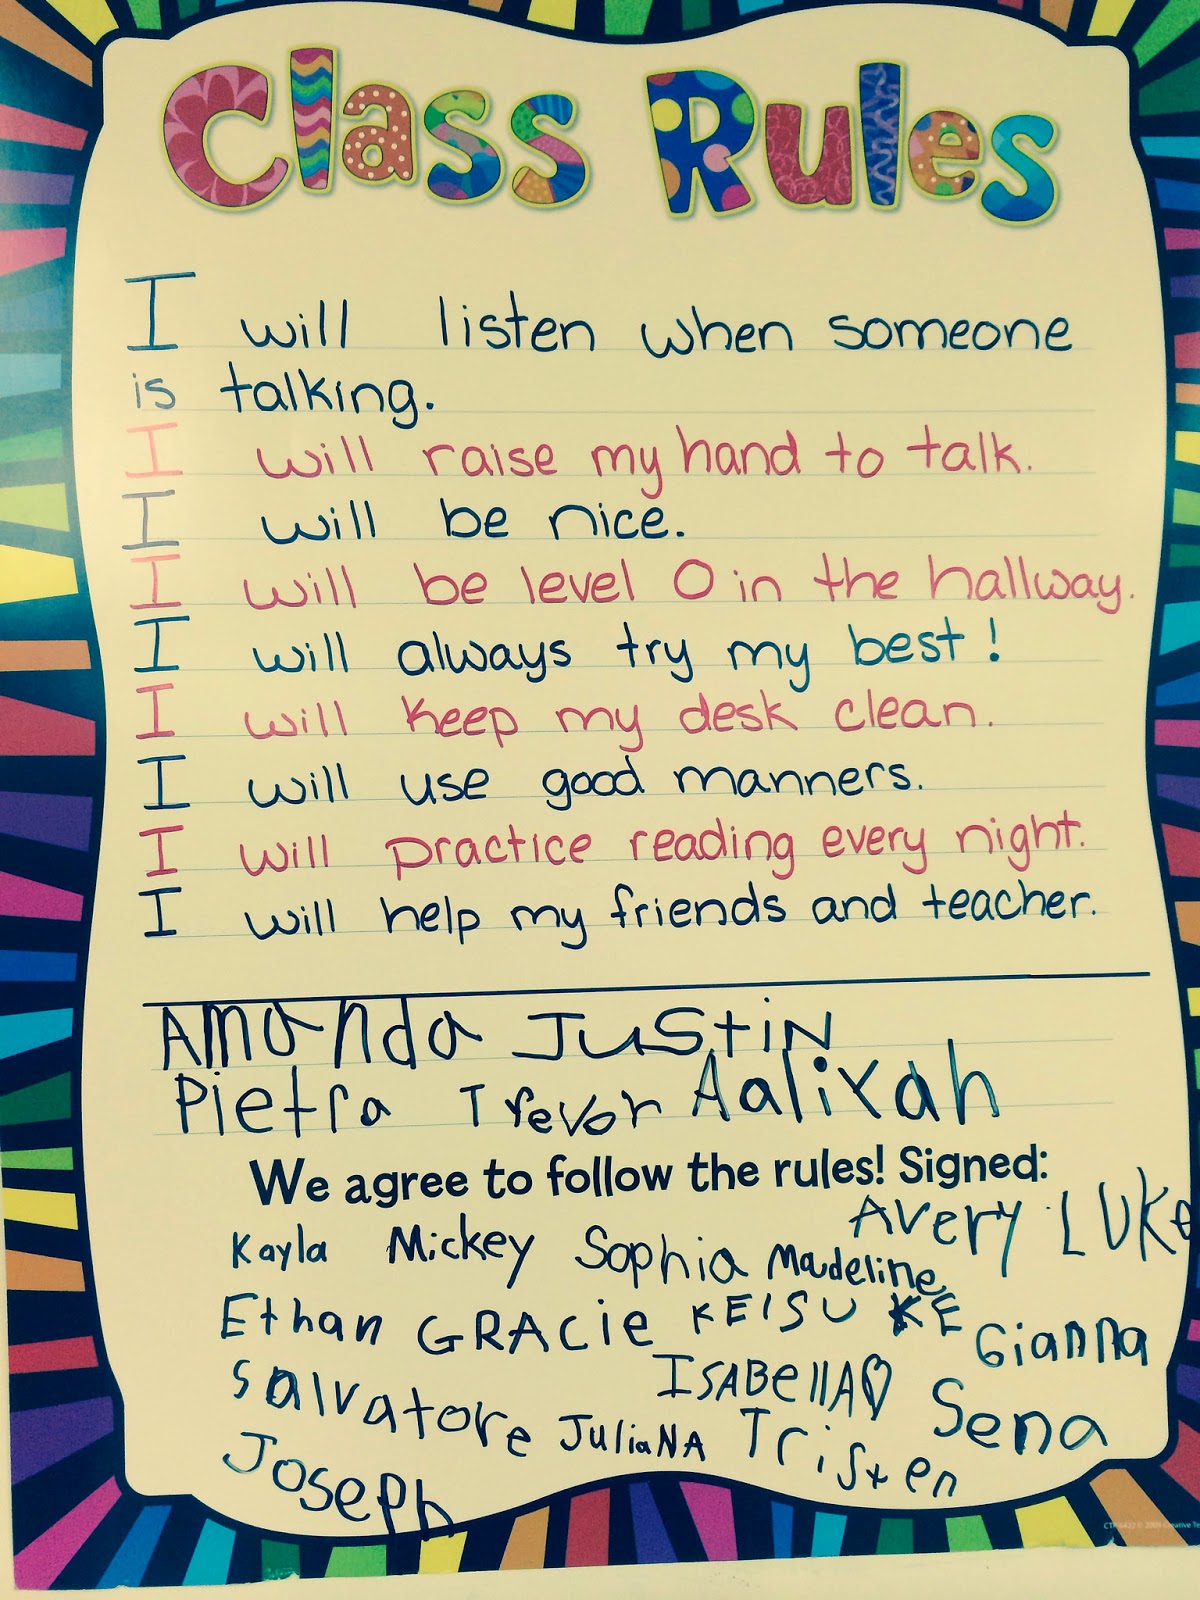 Class Rules
I will listen when someone
is talking.
I will raise my hand to talk.
I will be nice.
I will be level 0 in the hallway.
I will always try my best!
I will keep my desk clean.
I will use good manners.
I will practice reading every night.
I will help my friends and teacher.
Amanda Justin
Pietra Trevor Aaliyah
We agree to follow the rules! Signed:
Avery Luke
Kayla Mickey Sophia Madeline
Ethan GRACie KEISUKE Gianna
Salvatore ISABellA Sena
Joseph JuliaNA Tristen